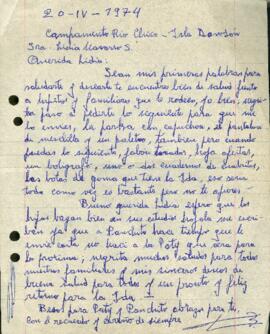 20-IV-1974
Campamento Río Chico - Isla Dawson
Sra. Lidia Navarro S.
Querida Lidia:
Sean mis primeras palabras para
saludarte y desearte te encuentres bien de salud junto
a hijitos y familiares que te rodean, yo bien, negrita
paso a pedirte lo siguiente para que me
lo envíes, la parka con capuchon, el pantalon
de mezclilla y un paletó, tambien pero cuando
puedas lo siguiente, jabon tocador, hoja afeitar,
un boligrafo, uno o dos cuaderno de cuadritos,
las botas de goma que tiene la Ida, eso seria
todo como ves es bastante pero no te apures.
Bueno querida Lidia espero que los
hijos hagan bien en sus estudios ojala me escri-
ban ya que a Panchito hace tiempo que le
envie carta no haci a la Paty que sera para
la proxima; negrita muchos saludos para todos
nuestros familiares y mis sinceros deseos de
buena salud para todos y un pronto y feliz
retorno para la Ida.
Besos para Paty y Panchito abrazos para ti,
con el recuerdo y cariño de siempre